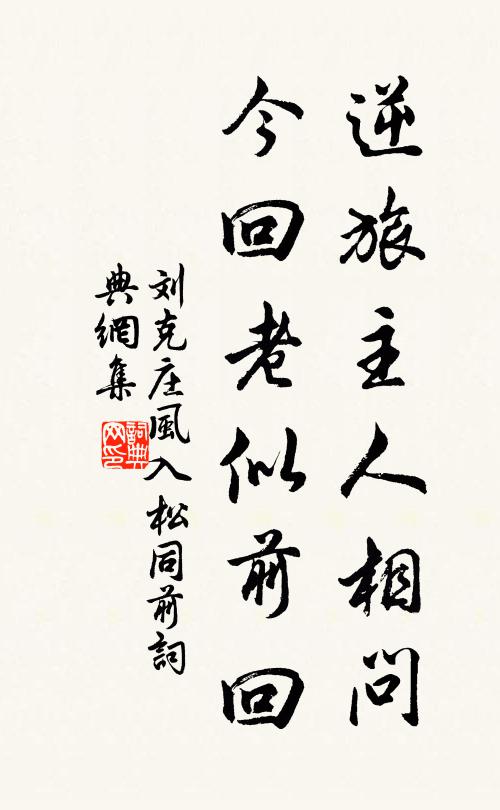 逆旅主人相問
今回老似前回
刘克庄風入松同前詞
典網集
詞典网印